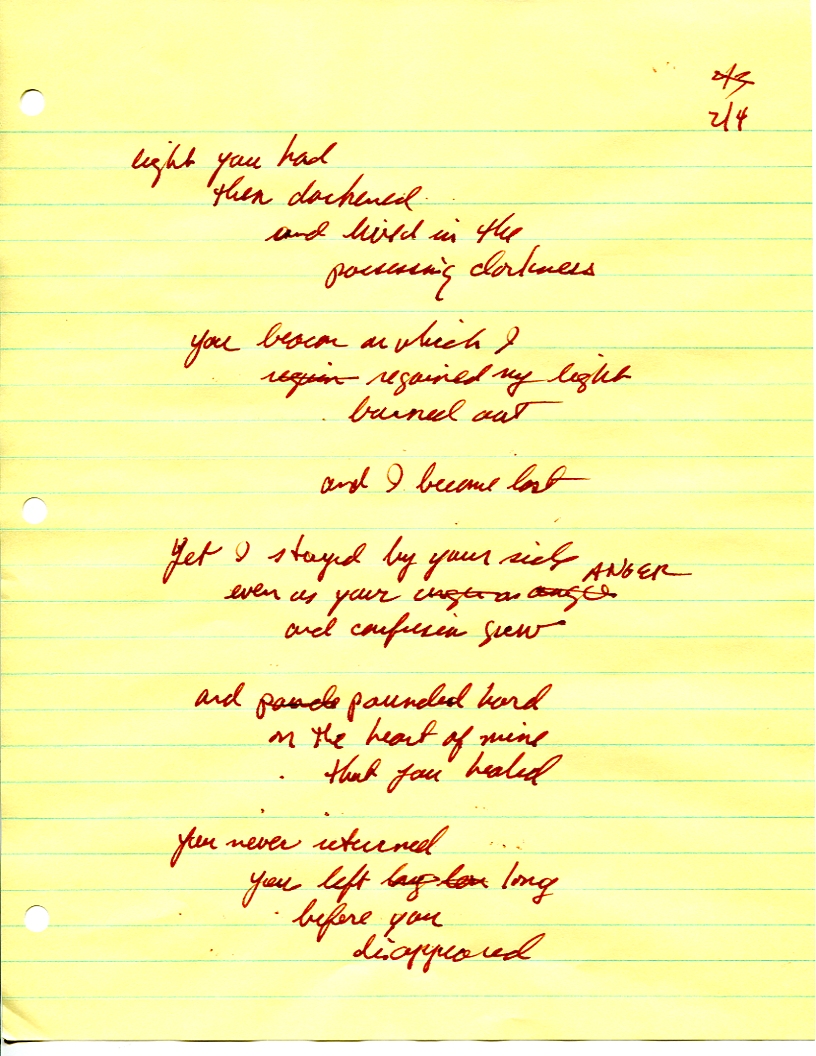 2/3
2/4
light you had
then darkened
and lived in the
possessing darkness
you beacon on which I
regain regained my light
burned out
and I became lost
Yet I stayed by your side
ANGER
even as your anger as
and confusion grew
and pounde pounded hard
on the heart of mine
that you healed
you never returned
you left long
before you
disappeared